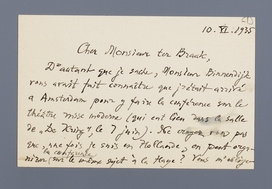 10. VI. 1935
Cher Monsieur ter Braak,
D'autant que je sache, Monsieur Binnendijk
vous avait fait connaître que j'étais arrivé
à Amsterdam pour y faire la conférence sur le
théâtre russe moderne (qui ont lieu dans la salle
de „De Kring", le 7 juin). Ne croyez vous pas
que, une fois je suis en Hollande, on peut orga-
niser la conférence sur le même sujet à la Haye? Vous m'oblige-